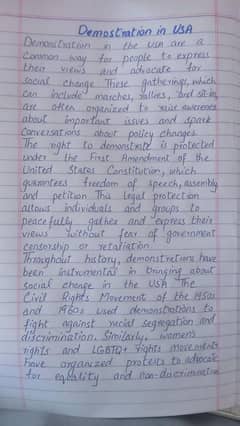 Demostration in USA
Demonstration in the USA are a
common way for people to express
their views and advocate for
social change These gatherings, which
can include marches, rallies, and sit-ins,
are often organized to raise awareness
about important issues and spark
conversations about policy changes.
The right to demonstrate is protected
under the First Amendment of the
United States Constitution, which
guarantees freedom of speech, assembly
and petition This legal protection
allows individuals and groups to
peacefully gather and express their
views without fear of government
censorship or retaliation.
Throughout history, demonstrations have
been instrumental in bringing about
social change in the USA The
Civil Rights Movement of the 1950s
and 1960s used demonstrations to
fight against racial segregation and
discrimination. Similarly, women's
rights and LGBTQ+ rights movements
have organized protests to advocate
for equality and non-discrimination